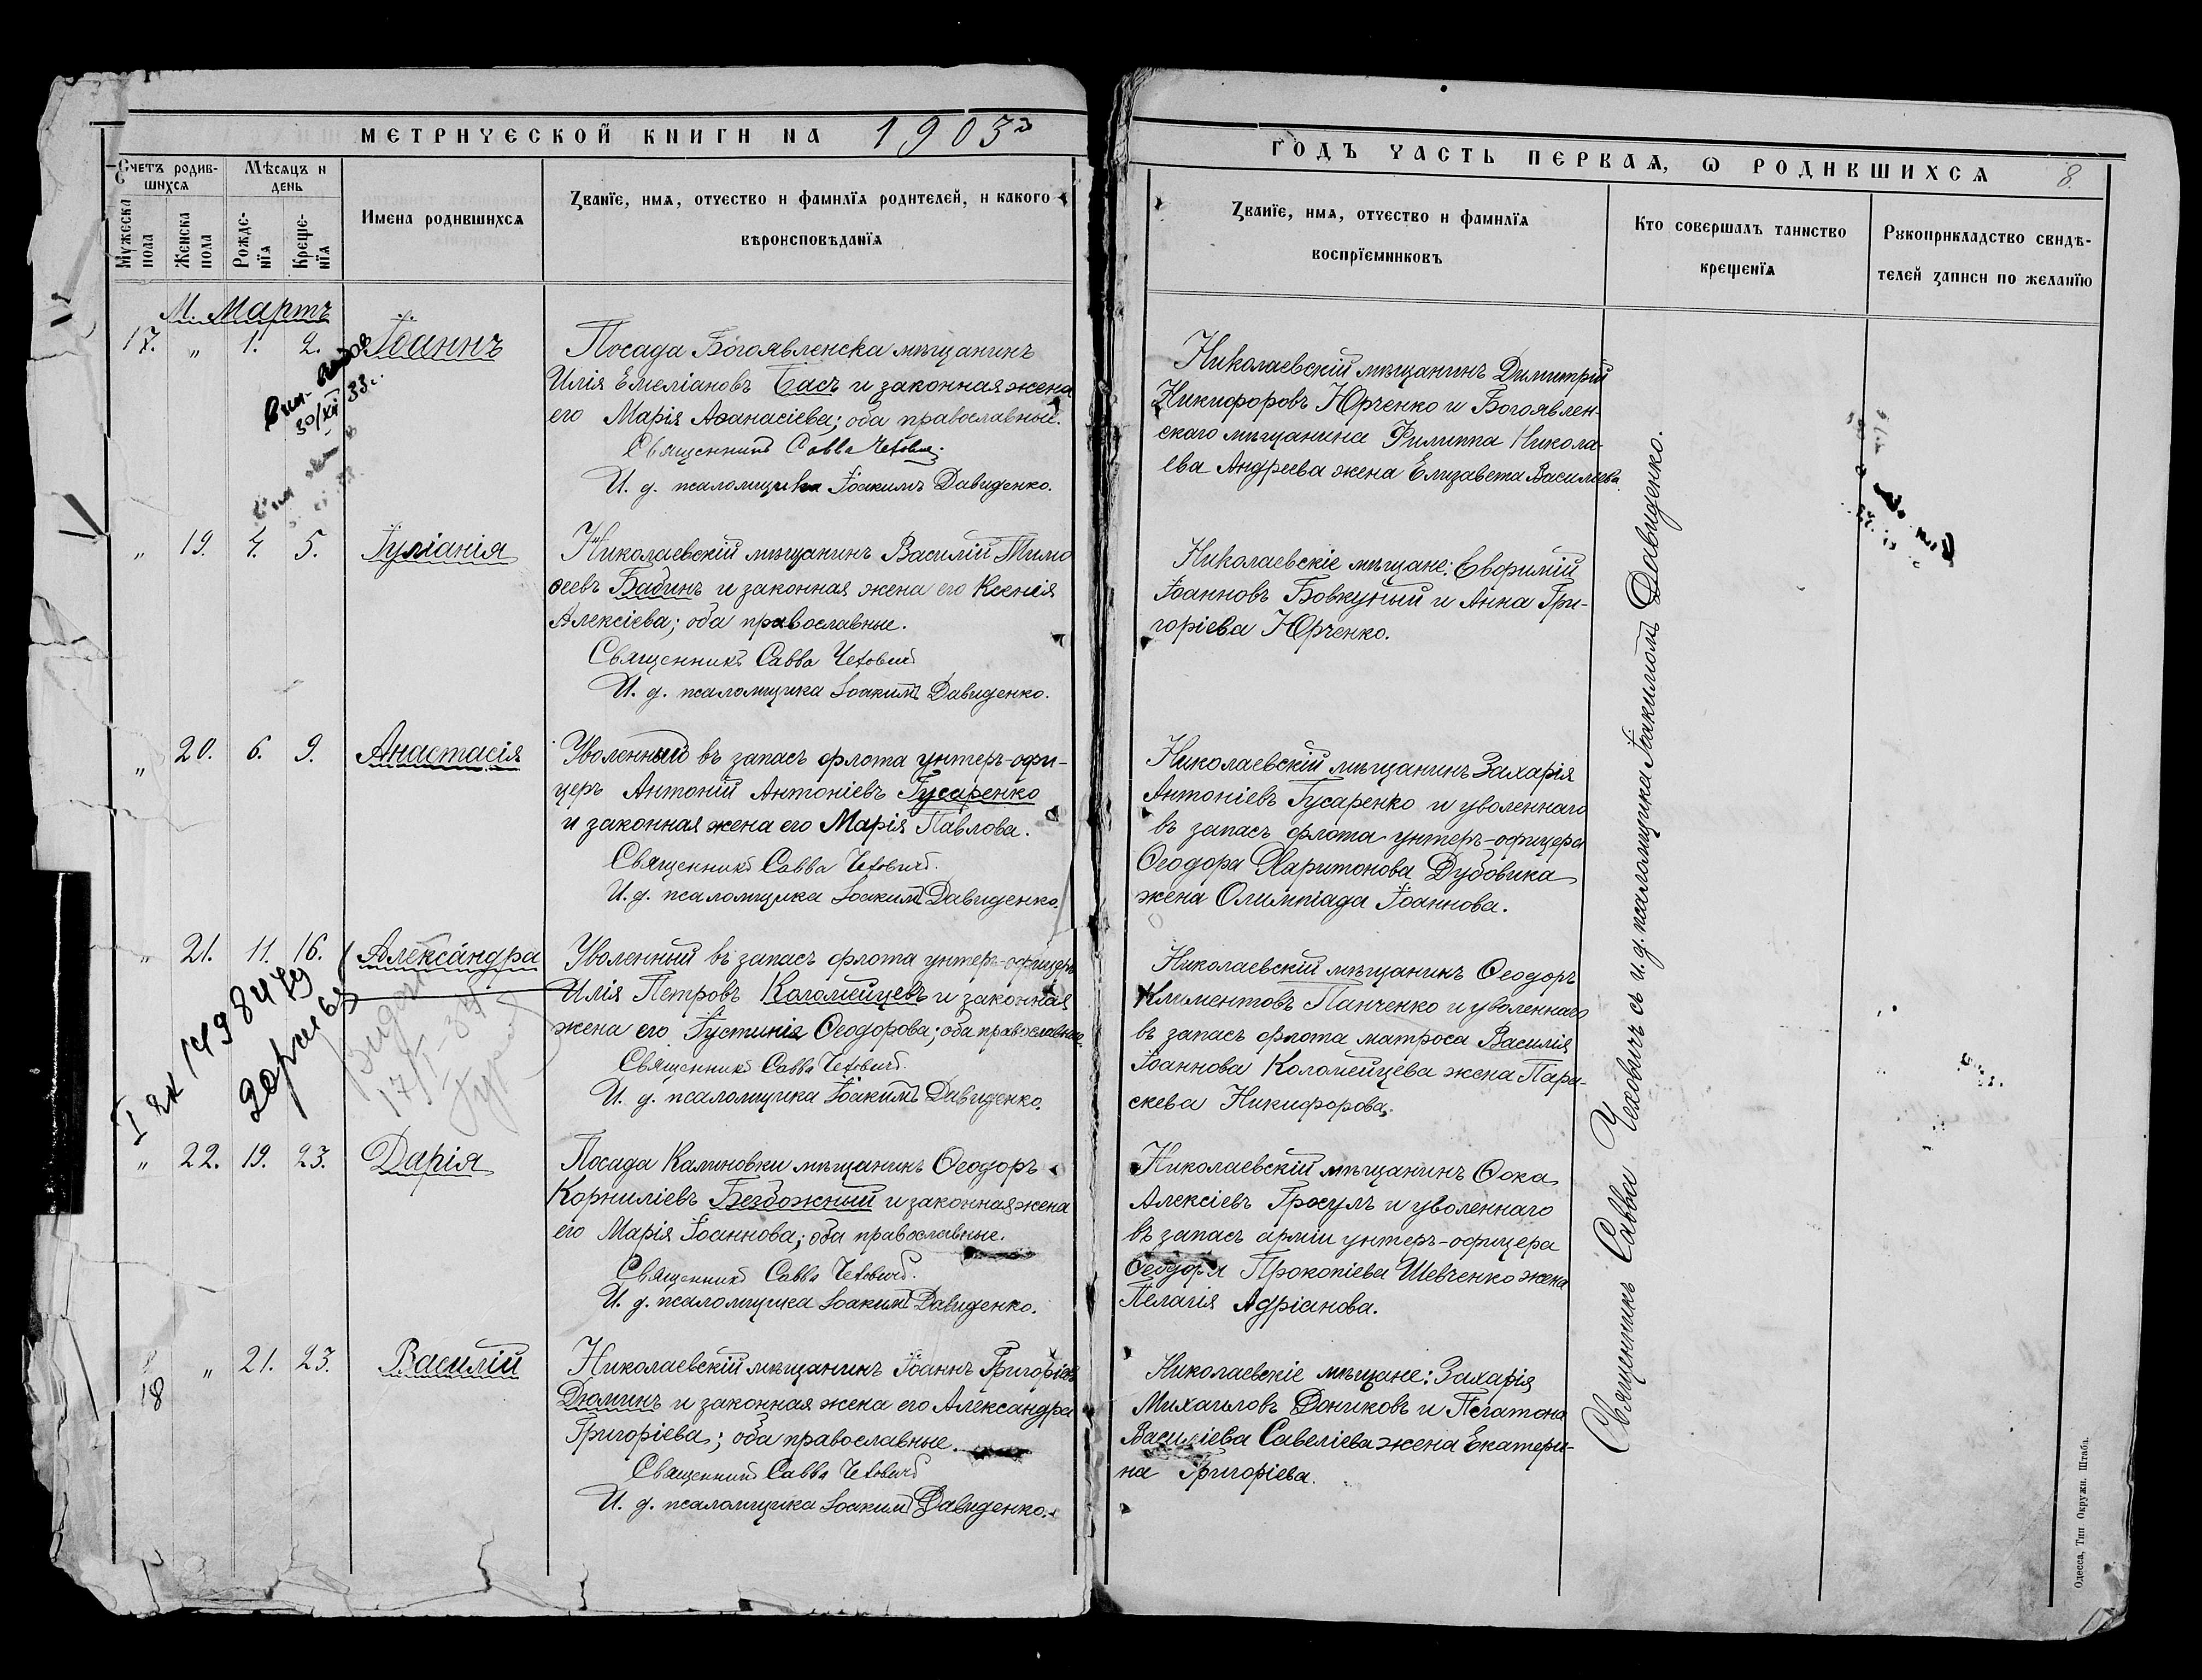 МЕТРИЧЕСКОЙ КНИГИ НА 1903
Счетъ родив-
шихся
Мѣсяцъ и
день
Мужеска
пола
Женска
пола
Рожде-
нїя
Креще-
нїя
Имена родившихся
Званїе, имя, отчество и фамилїя родителей, и какого
вѣроисповѣданїя
М. Мартъ
17. „ 1. 2. Іоаннъ
30/XII 33.
Посада Богоявленска мѣщанинъ
Илія Емеліановъ Басъ и законная жена
его Марія Аѳанасіева; оба православные.
Священникъ Савва Чеховичъ.
И. д. псаломщика Іоакимъ Давиденко.
„ 19. 4. 5. Іуліанія
Николаевскій мѣщанинъ Василій Тимо
ѳеевъ Бабинъ и законная жена его Ксенія
Алексіева; оба православные.
Священникъ Савва Чеховичъ
И. д. псаломщика Іоакимъ Давиденко.
„ 20. 6. 9. Анастасія
Уволенный въ запасъ флота унтеръ-офи-
церъ Антоній Антоніевъ Гусаренко
и законная жена его Марія Павлова.
Священникъ Савва Чеховичъ.
И. д. псаломщика Іоакимъ Давиденко.
„ 21. 11. 16. Александра
Уволенный въ запасъ флота унтеръ-офицеръ
Илія Петровъ Коломейцевъ и законная
жена его Іустинія Ѳеодорова; оба православные.
Священникъ Савва Чеховичъ.
И. д. псаломщика Іоакимъ Давиденко.
„ 22. 19. 23. Дарія
Посада Калиновки мѣщанинъ Ѳеодоръ
Корниліевъ Безбожный и законная жена
его Марія Іоаннова; оба православные.
Священникъ Савва Чеховичъ.
И. д. псаломщика Іоакимъ Давиденко.
18 „ 21. 23. Василій
Николаевскій мѣщанинъ Іоаннъ Григоріевъ
Дюминъ и законная жена его Александра
Григоріева; оба православные.
Священникъ Савва Чеховичъ
И. д. псаломщика Іоакимъ Давиденко.
ГОДЪ ЧАСТЬ ПЕРВАЯ, Ѡ РОДИВШИХСЯ
8.
Званїе, имя, отчество и фамилїя
воспрїемниковъ
Кто совершалъ таинство
крещенїя
Рукоприкладство свидѣ-
телей записи по желанїю
Николаевскій мѣщанинъ Димитрій
Никифоровъ Юрченко и Богоявлен-
скаго мѣщанина Филиппа Никола-
ева Андреева жена Елизавета Василіева.
Николаевскіе мѣщане: Евфимій
Іоанновъ Бовкуный и Анна Гри-
горіева Юрченко.
Николаевскій мѣщанинъ Захарія
Антоніевъ Гусаренко и уволеннаго
въ запасъ флота унтеръ-офицера
Ѳеодора Харитонова Дубовика
жена Олимпіада Іоаннова.
Николаевскій мѣщанинъ Ѳеодоръ
Климентовъ Панченко и уволеннаго
въ запасъ флота матроса Василія
Іоаннова Коломейцева жена Пара-
скева Никифорова.
Николаевскій мѣщанинъ Ѳока
Алексіевъ Гросулъ и уволеннаго
въ запасъ арміи унтеръ-офицера
Ѳеодора Прокопіева Шевченко жена
Пелагія Адріанова.
Николаевскіе мѣщане: Захарія
Михаиловъ Дониковъ и Платона
Василіева Савеліева жена Екатери-
на Григоріева.
Священникъ Савва Чеховичъ съ и. д. псаломщика Іоакимомъ Давиденко.
Одесса, Тип Окружн. Штаба.